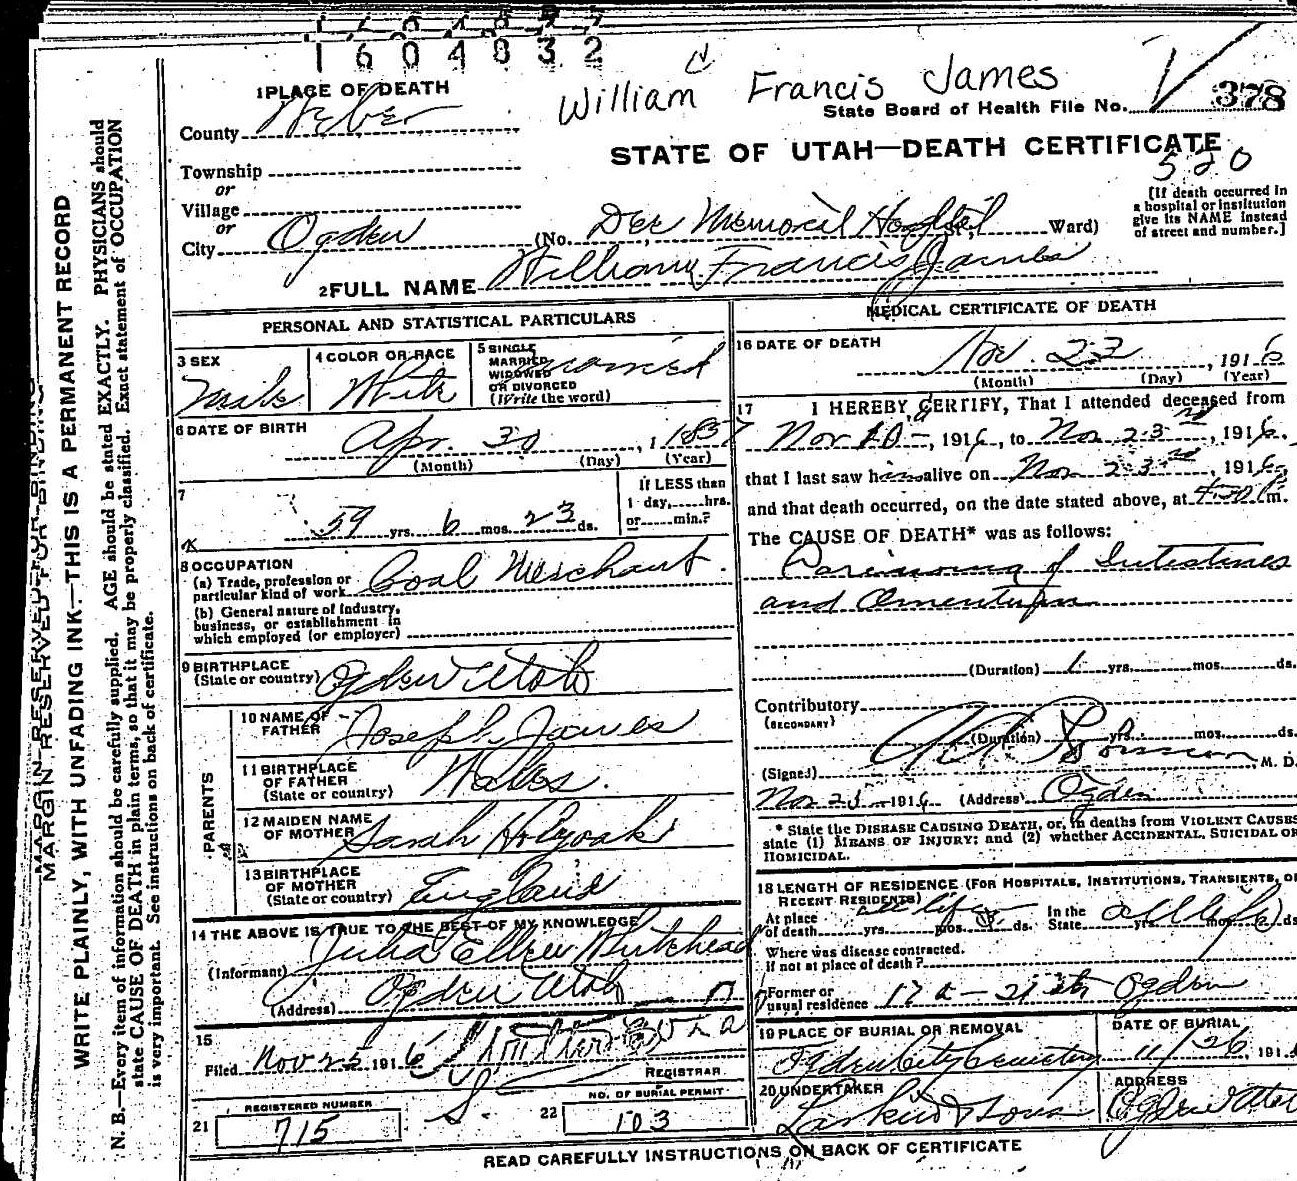 1604832
William Francis James
1 PLACE OF DEATH
County Weber
State Board of Health File No. 378
STATE OF UTAH—DEATH CERTIFICATE
520
Township
or
Village
or
City Ogden (No. Dee Memorial Hospital St., Ward)
[If death occurred in
a hospital or institution
give its NAME instead
of street and number.]
2 FULL NAME William Francis James
PERSONAL AND STATISTICAL PARTICULARS
3 SEX
Male
4 COLOR OR RACE
White
5 SINGLE
MARRIED
WIDOWED
OR DIVORCED
(Write the word)
married
6 DATE OF BIRTH
Apr. 30, 1857
(Month) (Day) (Year)
7
59 yrs. 6 mos. 23 ds.
If LESS than
1 day, hrs.
or min.?
8 OCCUPATION
(a) Trade, profession or
particular kind of work Coal Merchant.
(b) General nature of Industry,
business, or establishment in
which employed (or employer)
9 BIRTHPLACE
(State or country) Ogden Utah
PARENTS
10 NAME OF
FATHER Joseph James
11 BIRTHPLACE
OF FATHER
(State or country) Wales.
12 MAIDEN NAME
OF MOTHER Sarah Holyoak
13 BIRTHPLACE
OF MOTHER
(State or country) England
14 THE ABOVE IS TRUE TO THE BEST OF MY KNOWLEDGE
(Informant) Julia Ellen
(Address) Ogden Utah
15
Filed Nov 25 1916
REGISTRAR
REGISTERED NUMBER
21 715
NO. OF BURIAL PERMIT
22 103
MEDICAL CERTIFICATE OF DEATH
16 DATE OF DEATH
Nov. 23, 1916
(Month) (Day) (Year)
17 I HEREBY CERTIFY, That I attended deceased from
Nov 10 -, 1916, to Nov 23rd, 1916.
that I last saw him alive on Nov 23rd, 1916,
and that death occurred, on the date stated above, at 4:30 P.m.
The CAUSE OF DEATH* was as follows:
Carcinoma of Intestines
and Omentum
(Duration) 1 yrs. mos. ds.
Contributory
(SECONDARY)
(Duration) yrs. mos. ds.
(Signed) M. D.
Nov 1916 (Address) Ogden
* State the DISEASE CAUSING DEATH, or, in deaths from VIOLENT CAUSES
state (1) MEANS OF INJURY; and (2) whether ACCIDENTAL, SUICIDAL OR
HOMICIDAL.
18 LENGTH OF RESIDENCE (FOR HOSPITALS, INSTITUTIONS, TRANSIENTS, OR
RECENT RESIDENTS)
At place
of death all life yrs. mos. ds. In the
State all life yrs. mos. ds.
Where was disease contracted.
if not at place of death?
Former or
usual residence Ogden
19 PLACE OF BURIAL OR REMOVAL
Ogden City Cemetery
DATE OF BURIAL
11/26, 191
20 UNDERTAKER
Larkin & Sons
ADDRESS
Ogden Utah
READ CAREFULLY INSTRUCTIONS ON BACK OF CERTIFICATE
MARGIN RESERVED FOR BINDING
WRITE PLAINLY, WITH UNFADING INK.—THIS IS A PERMANENT RECORD
N. B.—Every item of information should be carefully supplied. AGE should be stated EXACTLY. PHYSICIANS should
state CAUSE OF DEATH in plain terms, so that it may be properly classified. Exact statement of OCCUPATION
is very important. See instructions on back of certificate.